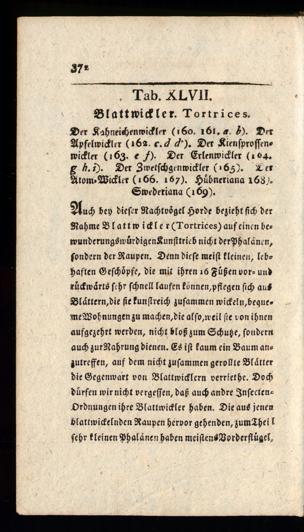 372
Tab. XLVII.
Blattwickler. Tortrices.
Der Kahneichenwickler (160. 161. a. b). Der
Apfelwickler (162. c. d d*). Der Kiensprossen-
wickler (163. e f). Der Erlenwickler (164.
g h. i). Der Zweschgenwickler (165). Der
Atom-Wickler (166. 167). Hübneriana 168).
Swederiana (169).
Auch bey dieser Nachtvögel Horde bezieht sich der
Nahme Blattwickler (Tortrices) auf einen be-
wunderungswürdigen Kunsttrieb nicht der Phalänen,
sondern der Raupen. Denn diese meist kleinen, leb-
haften Geschöpfe, die mit ihren 16 Füßen vor- und
rückwärts sehr schnell laufen können, pflegen sich aus
Blättern, die sie kunstreich zusammen wickeln, beque-
me Wohnungen zu machen, die also, weil sie von ihnen
aufgezehrt werden, nicht bloß zum Schutze, sondern
auch zur Nahrung dienen. Es ist kaum ein Baum an-
zutreffen, auf dem nicht zusammen gerollte Blätter
die Gegenwart von Blattwicklern verriethe. Doch
dürfen wir nicht vergessen, daß auch andre Insecten-
Ordnungen ihre Blattwickler haben. Die aus jenen
blattwickelnden Raupen hervor gehenden, zum Theil
sehr kleinen Phalänen haben meistens Vorderflügel,